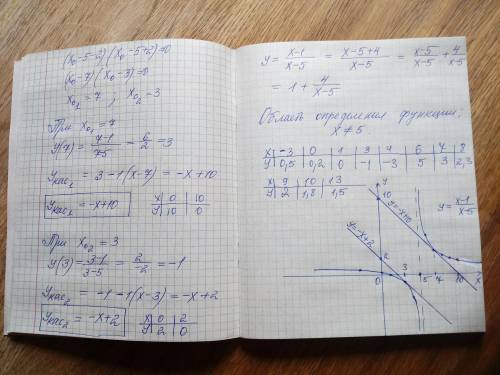 (x₀-5-2)(x₀-5+2)=0
(x₀-7)(x₀-3)=0
x₀₁=7 ; x₀₂=3
При x₀₁=7
y(7)=(7-1)/(7-5)=6/2=3
yкас₁ = 3-1(x-7)=-x+10
yкас₁ = -x+10
x | 0 | 10
y | 10 | 0
При x₀₂=3
y(3)=(3-1)/(3-5)=2/-2=-1
yкас₂ = -1-1(x-3)=-x+2
yкас₂ = -x+2
x | 0 | 2
y | 2 | 0
y=(x-1)/(x-5) = (x-5+4)/(x-5) = (x-5)/(x-5) + 4/(x-5)
= 1+ 4/(x-5)
Область определения функции:
x≠5
x | -3 | 0 | 1 | 3 | 4 | 6 | 7 | 8
y | 0,5 | 0,2 | 0 | -1 | -3 | 5 | 3 | 2,3
x | 9 | 10 | 13
y | 2 | 1,8 | 1,5
y
10
y=-x+10
y=(x-1)/(x-5)
y=-x+2
2
0
3
5
7
10
x